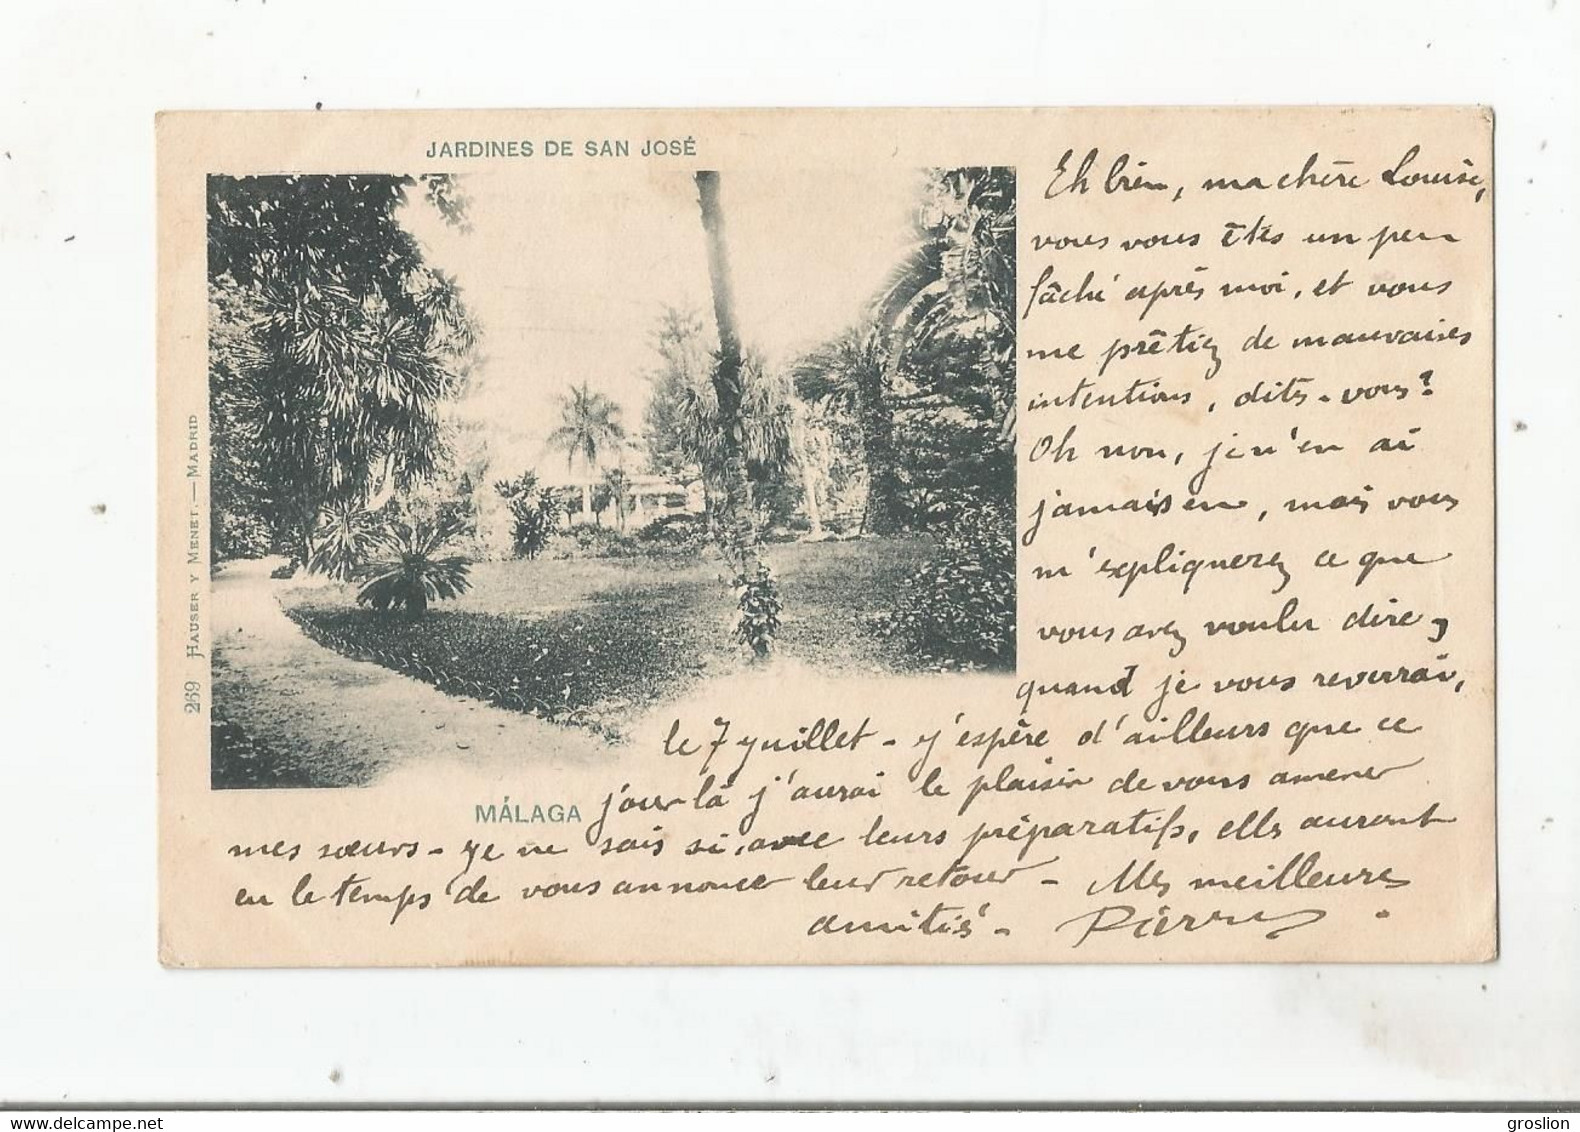 JARDINES DE SAN JOSÉ
Eh bien, ma chère Louise,
vous vous êtes un peu
fâché après moi, et vous
me prêtiez de mauvaises
intentions, dites-vous?
Oh non, je n'en ai
jamais eu, mais vous
m'expliquerez ce que
vous avez voulu dire,
quand je vous reverrai,
le 7 juillet - j'espère d'ailleurs que ce
jour là j'aurai le plaisir de vous amener
mes sœurs - je ne sais si, avec leurs préparatifs, elles auront
eu le temps de vous annoncer leur retour - Mes meilleures
amitiés - Pierre.
MÁLAGA
269 HAUSER Y MENET.—MADRID
delcampe.net
groslion